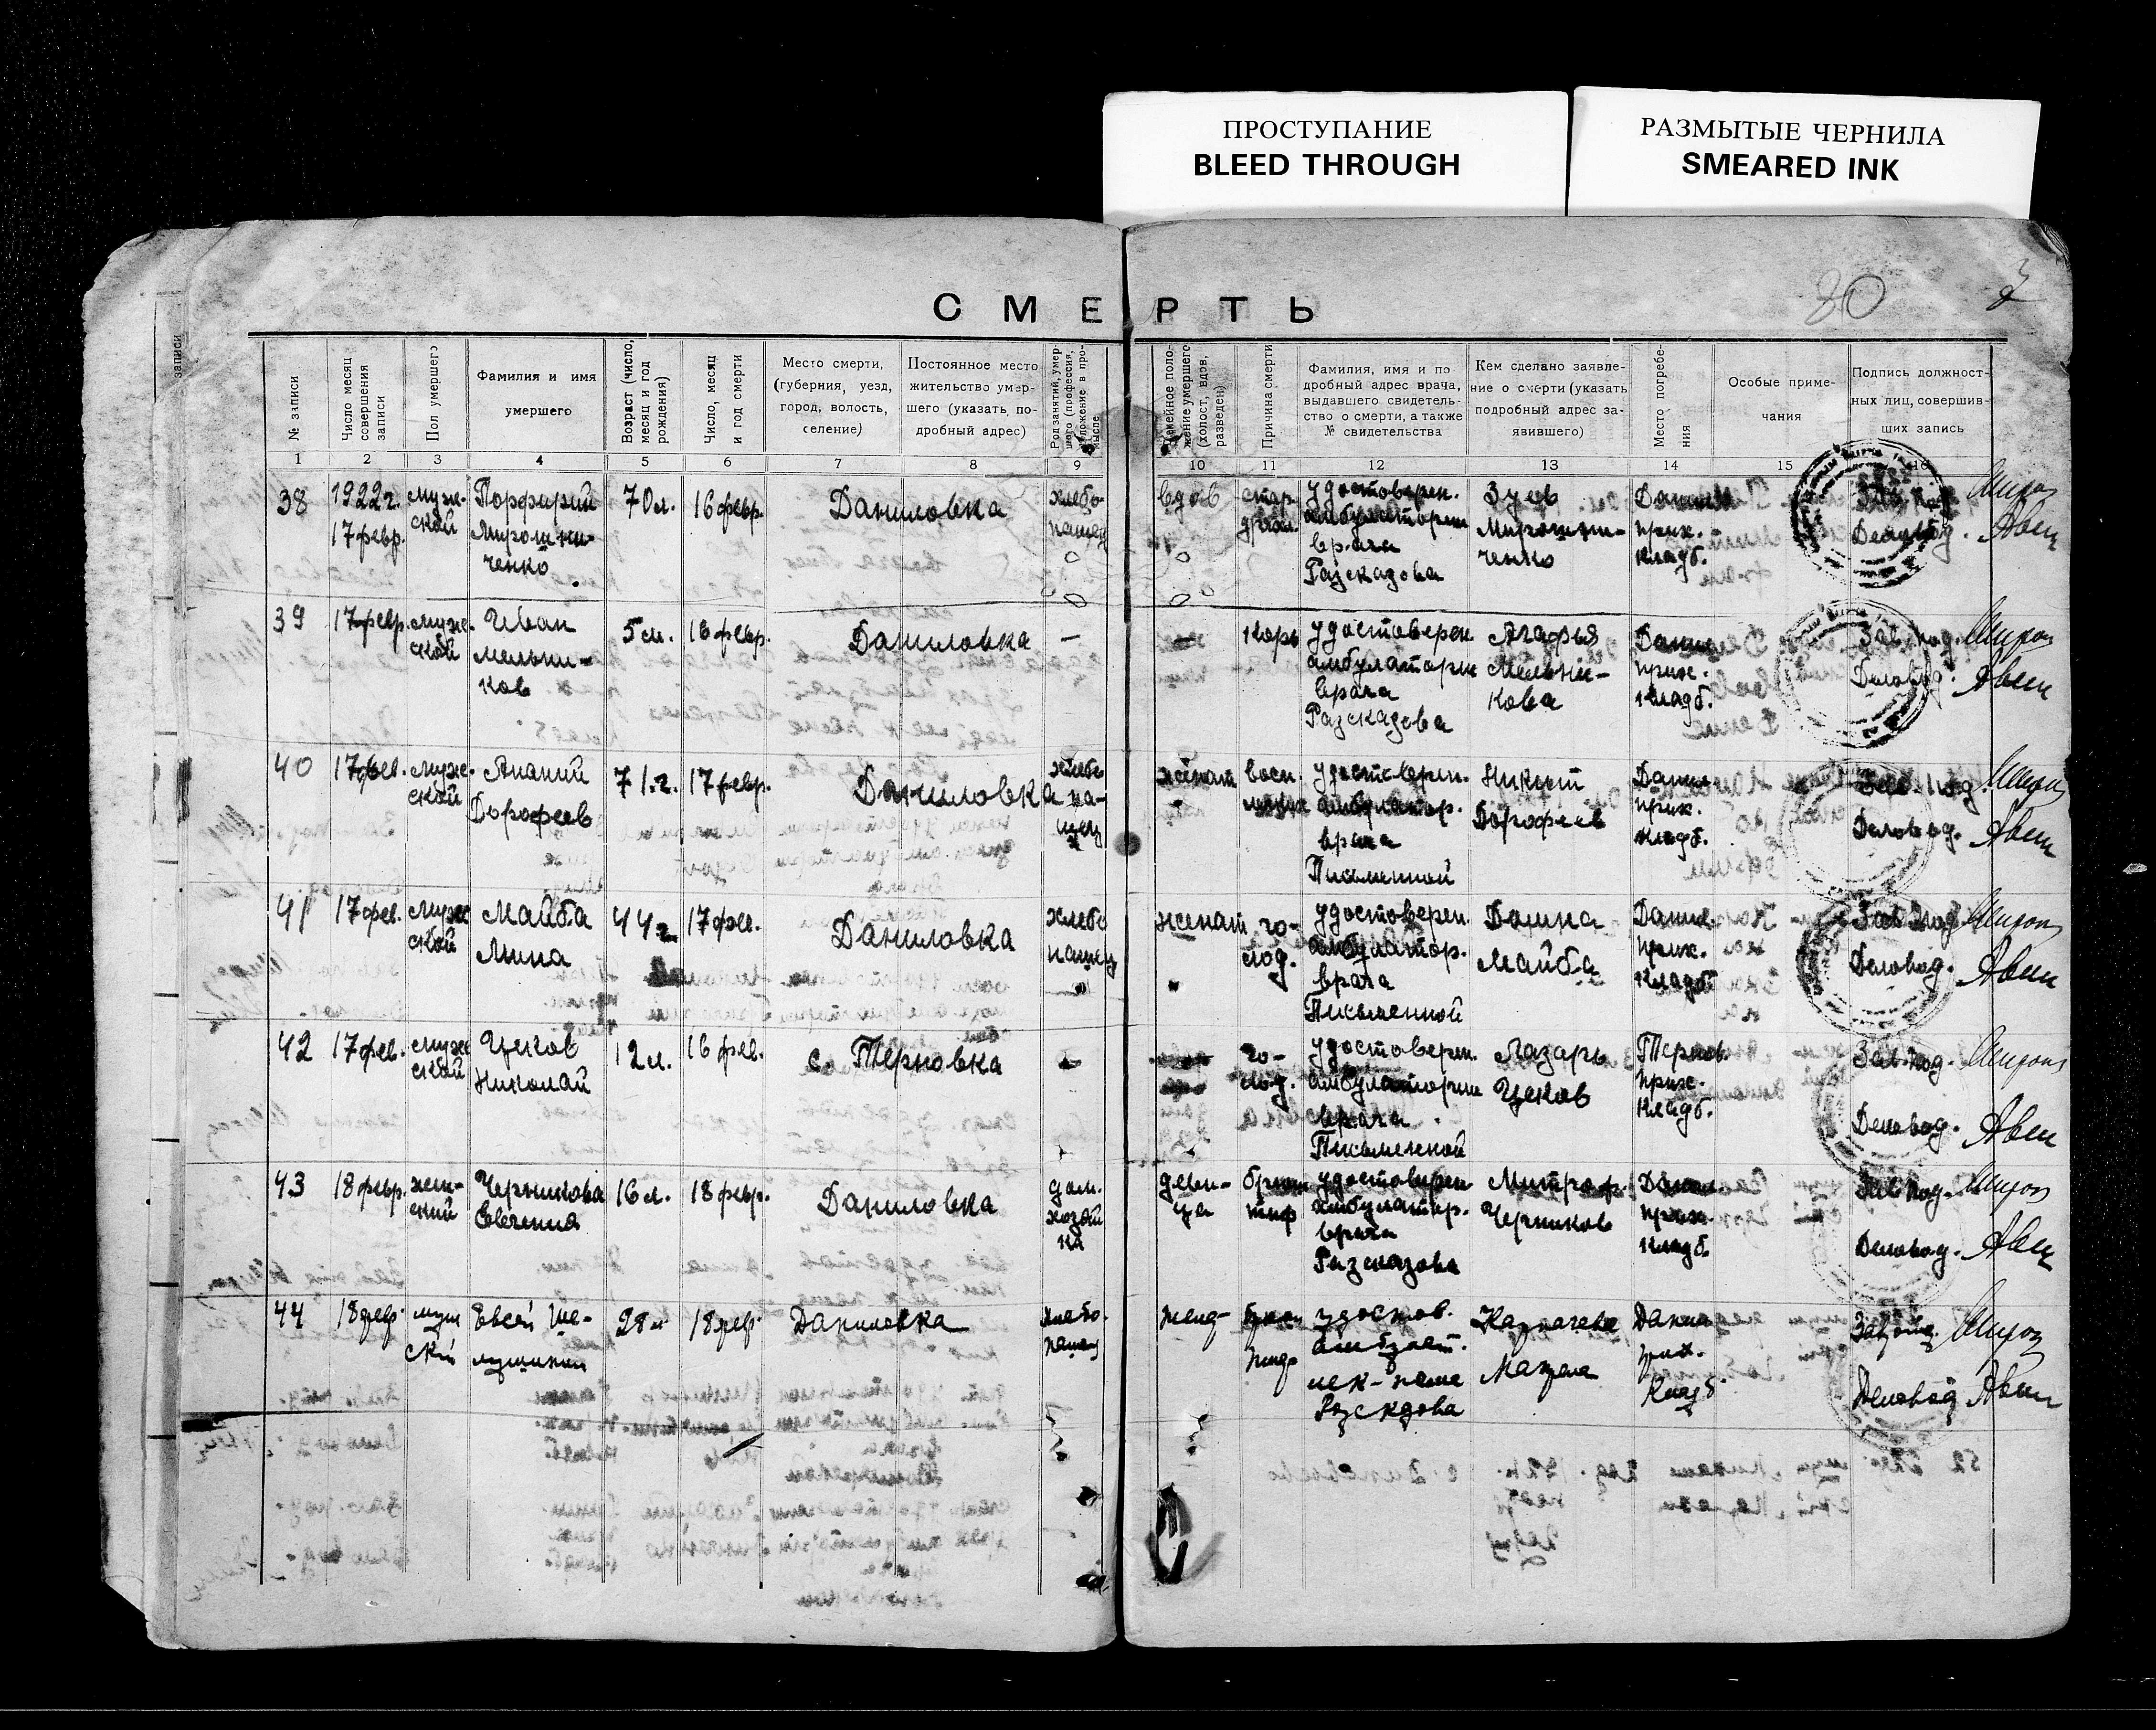 ПРОСТУПАНИЕ
BLEED THROUGH
РАЗМЫТЫЕ ЧЕРНИЛА
SMEARED INK
80
СМЕРТЬ
№ записи
Число месяц
совершения
записи
Пол умершего
Фамилия и имя
умершего
Возраст (число,
месяц и год
рождения)
Число, месяц
и год смерти
Место смерти,
(губерния, уезд,
город, волость,
селение)
Постоянное место
жительство умер-
шего (указать по-
дробный адрес)
Род занятий, умер-
шего (профессия,
положение в про-
мысле
Семейное поло-
жение умершего
(холост, вдов,
разведен)
Причина смерти
Фамилия, имя и по
дробный адрес врача,
выдавшего свидетель-
ство о смерти, а также
№ свидетельства
Кем сделано заявле-
ние о смерти (указать
подробный адрес за-
явившего)
Место погребе-
ния
Особые приме-
чания
Подпись должност-
ных лиц, совершив-
ших запись
1 2 3 4 5 6 7 8 9 10 11 12 13 14 15 16
38
1922 г.
17 февр.
муж-
ской
Порфирий
Мирошни-
ченко
70 л.
16 февр.
Даниловка
хлебо-
пашец
вдов
стар.
удостоверен.
амбулатории
врача
Разсказова
Зуев
Мирошни-
ченко
прих.
кладб.
Зав. под.
Деловод.
39
17 февр.
муж-
ской
Иван
Мельни-
ков
5 м.
16 февр.
Даниловка
—
корь
удостоверен
амбулатории
врача
Разсказова
Агафья
Мельни-
кова
Данил.
прих.
кладб.
Зав. под.
Деловод.
40
17 фев.
муж-
ской
Ананий
Дорофеев
71 г.
17 февр.
Даниловка
хлебо
па-
шец
женат
восп.
удостоверен.
амбулатор.
врача
Письменной
Никит
Дорофеев
Данил
прих.
кладб.
Зав. под.
Деловод.
41
17 фев.
муж
ской
Майба
Мина
44 г.
17 фев.
Даниловка
хлебо
пашец
женат
го-
лод.
удостоверен
амбулатор.
врача
Письменной
Домна
Майба
Данил.
прих.
кладб
Зав. под.
Деловод.
42
17 фев.
муж
ской
Цеков
Николай
12 л.
16 фев.
с. Терновка
го-
лод.
удостоверен.
амбулатории
врача
Письменной
Лазарь
Цеков
Тернов.
прих.
кладб.
Зав. под.
Деловод.
43
18 февр.
жен-
ский
Черникова
Евгения
16 л.
18 февр.
Даниловка
дом.
хозяй
ка
деви-
ца
брюш
тиф
удостоверен
амбулатор.
врача
Разсказова
Митроф.
Черников
Данил.
прих.
кладб.
Зав. под.
Деловод.
44
18 фев.
муж
ский
Евсей
28 л
18 фев.
Даниловка
хлебо-
пашец
удостов.
амбулат.
Данил
прих.
Кладб
Деловод